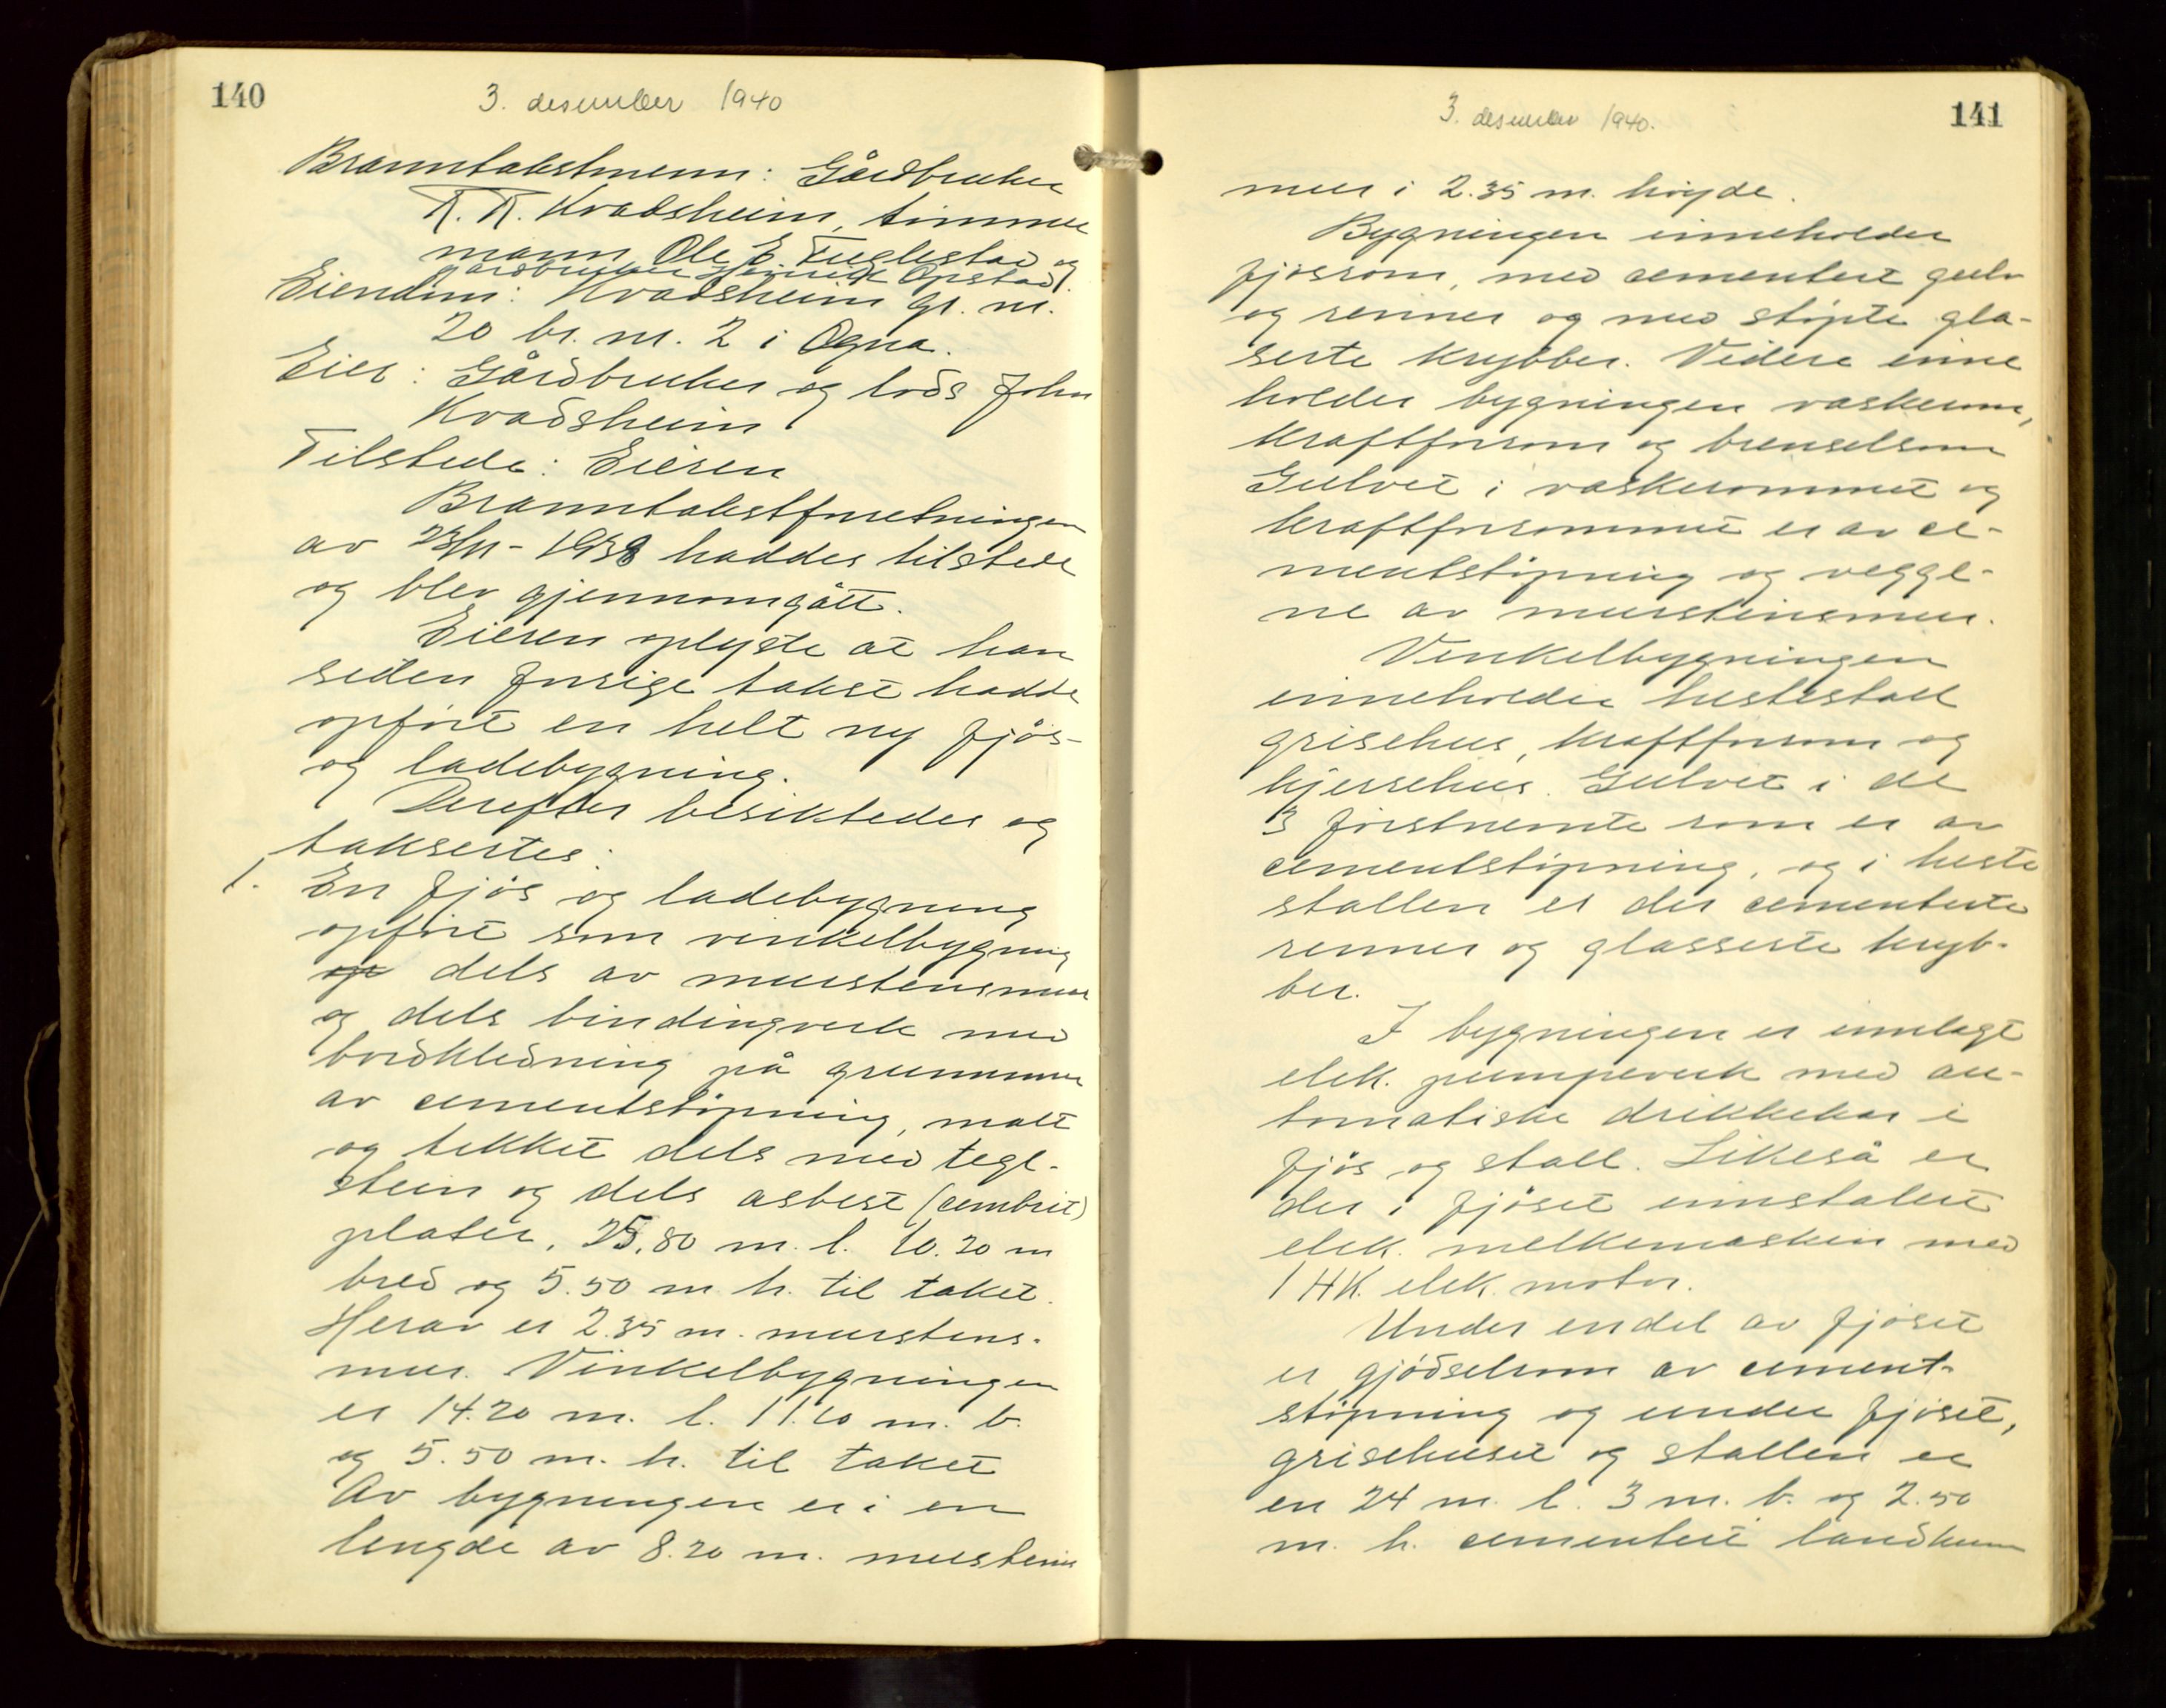 140
3. desember 1940
Branntakstmenn: Gårdbruker
T. T. Kvadsheim, timmer
mann Ole E. Fuglestad og
gårdbruker Henrik Opstad.
Eiendom: Kvadsheim gr. nr.
20 br. nr. 2 i Ogna.
Eier: Gårdbruker og lods John
Kvadsheim
Tilstede: Eieren
Branntakstforretningen
av 23/11 - 1938 haddes tilstede
og blev gjennomgått.
Eieren oplyste at han
siden forrige takst hadde
opført en helt ny fjøs-
og ladebygning.
Derefter besiktedes og
taksertes:
1. En fjøs og ladebygning
opført som vinkelbygning
op dels av murstensmur
og dels bindingverk med
bordkledning på grunnmur
av cementstøpning, malt
og tekket dels med tegl-
stein og dels asbest (cembrit)
plater, 25.80 m. l. 10.20 m
bred og 5.50 m h. til taket.
Herav er 2.35 m. murstens-
mur. Vinkelbygningen
er 14.20 m. l. 11.10 m. b.
og 5.50 m. h. til taket
Av bygningen er i en
lengde av 8.20 m. murstens
3. desember 1940.
141
mur i 2.35 m. høyde.
Bygningen inneholder
fjøsrom, med cementert gulv
og renner og med støpte gla-
serte krybber. Videre inne
holder bygningen vaskerom,
kraftforrom og brenselsrom
Gulvet i vaskerommet og
kraftforrommet er av ce-
mentstøpning og vegge-
ne av murstensmur.
Vinkelbygningen
inneholder hestestall
grisehus, kraftforrom og
kjerrehus. Gulvet i de
3 førstnemte rom er av
cementstøpning, og i heste
stallen er der cementerte
renner og glasserte kryb-
ber.
I bygningen er innlagt
elek. pumpeverk med au-
tomatiske drikkekar i
fjøs og stall. Likeså er
der i fjøset innstalert
elek. melkemaskin med
1 HK. elek. motor.
Under en del av fjøset
er gjødselrom av cement-
støpning og under fjøset,
grisehuset og stallen er
en 24 m. l. 3 m. b. og 2.50
m. h. cementert landkum